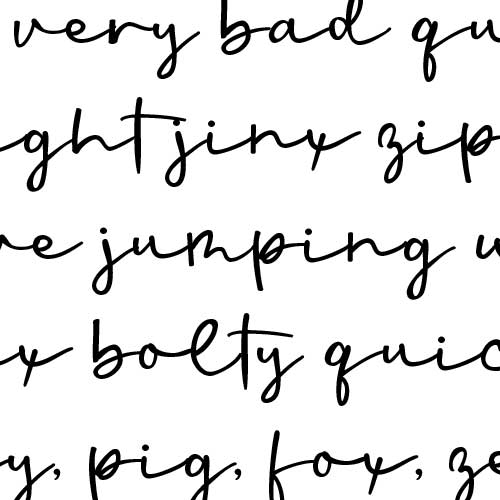 very bad qu
ghtjinx zip
ve jumping w
x bolty quic
y, pig, fox, ze